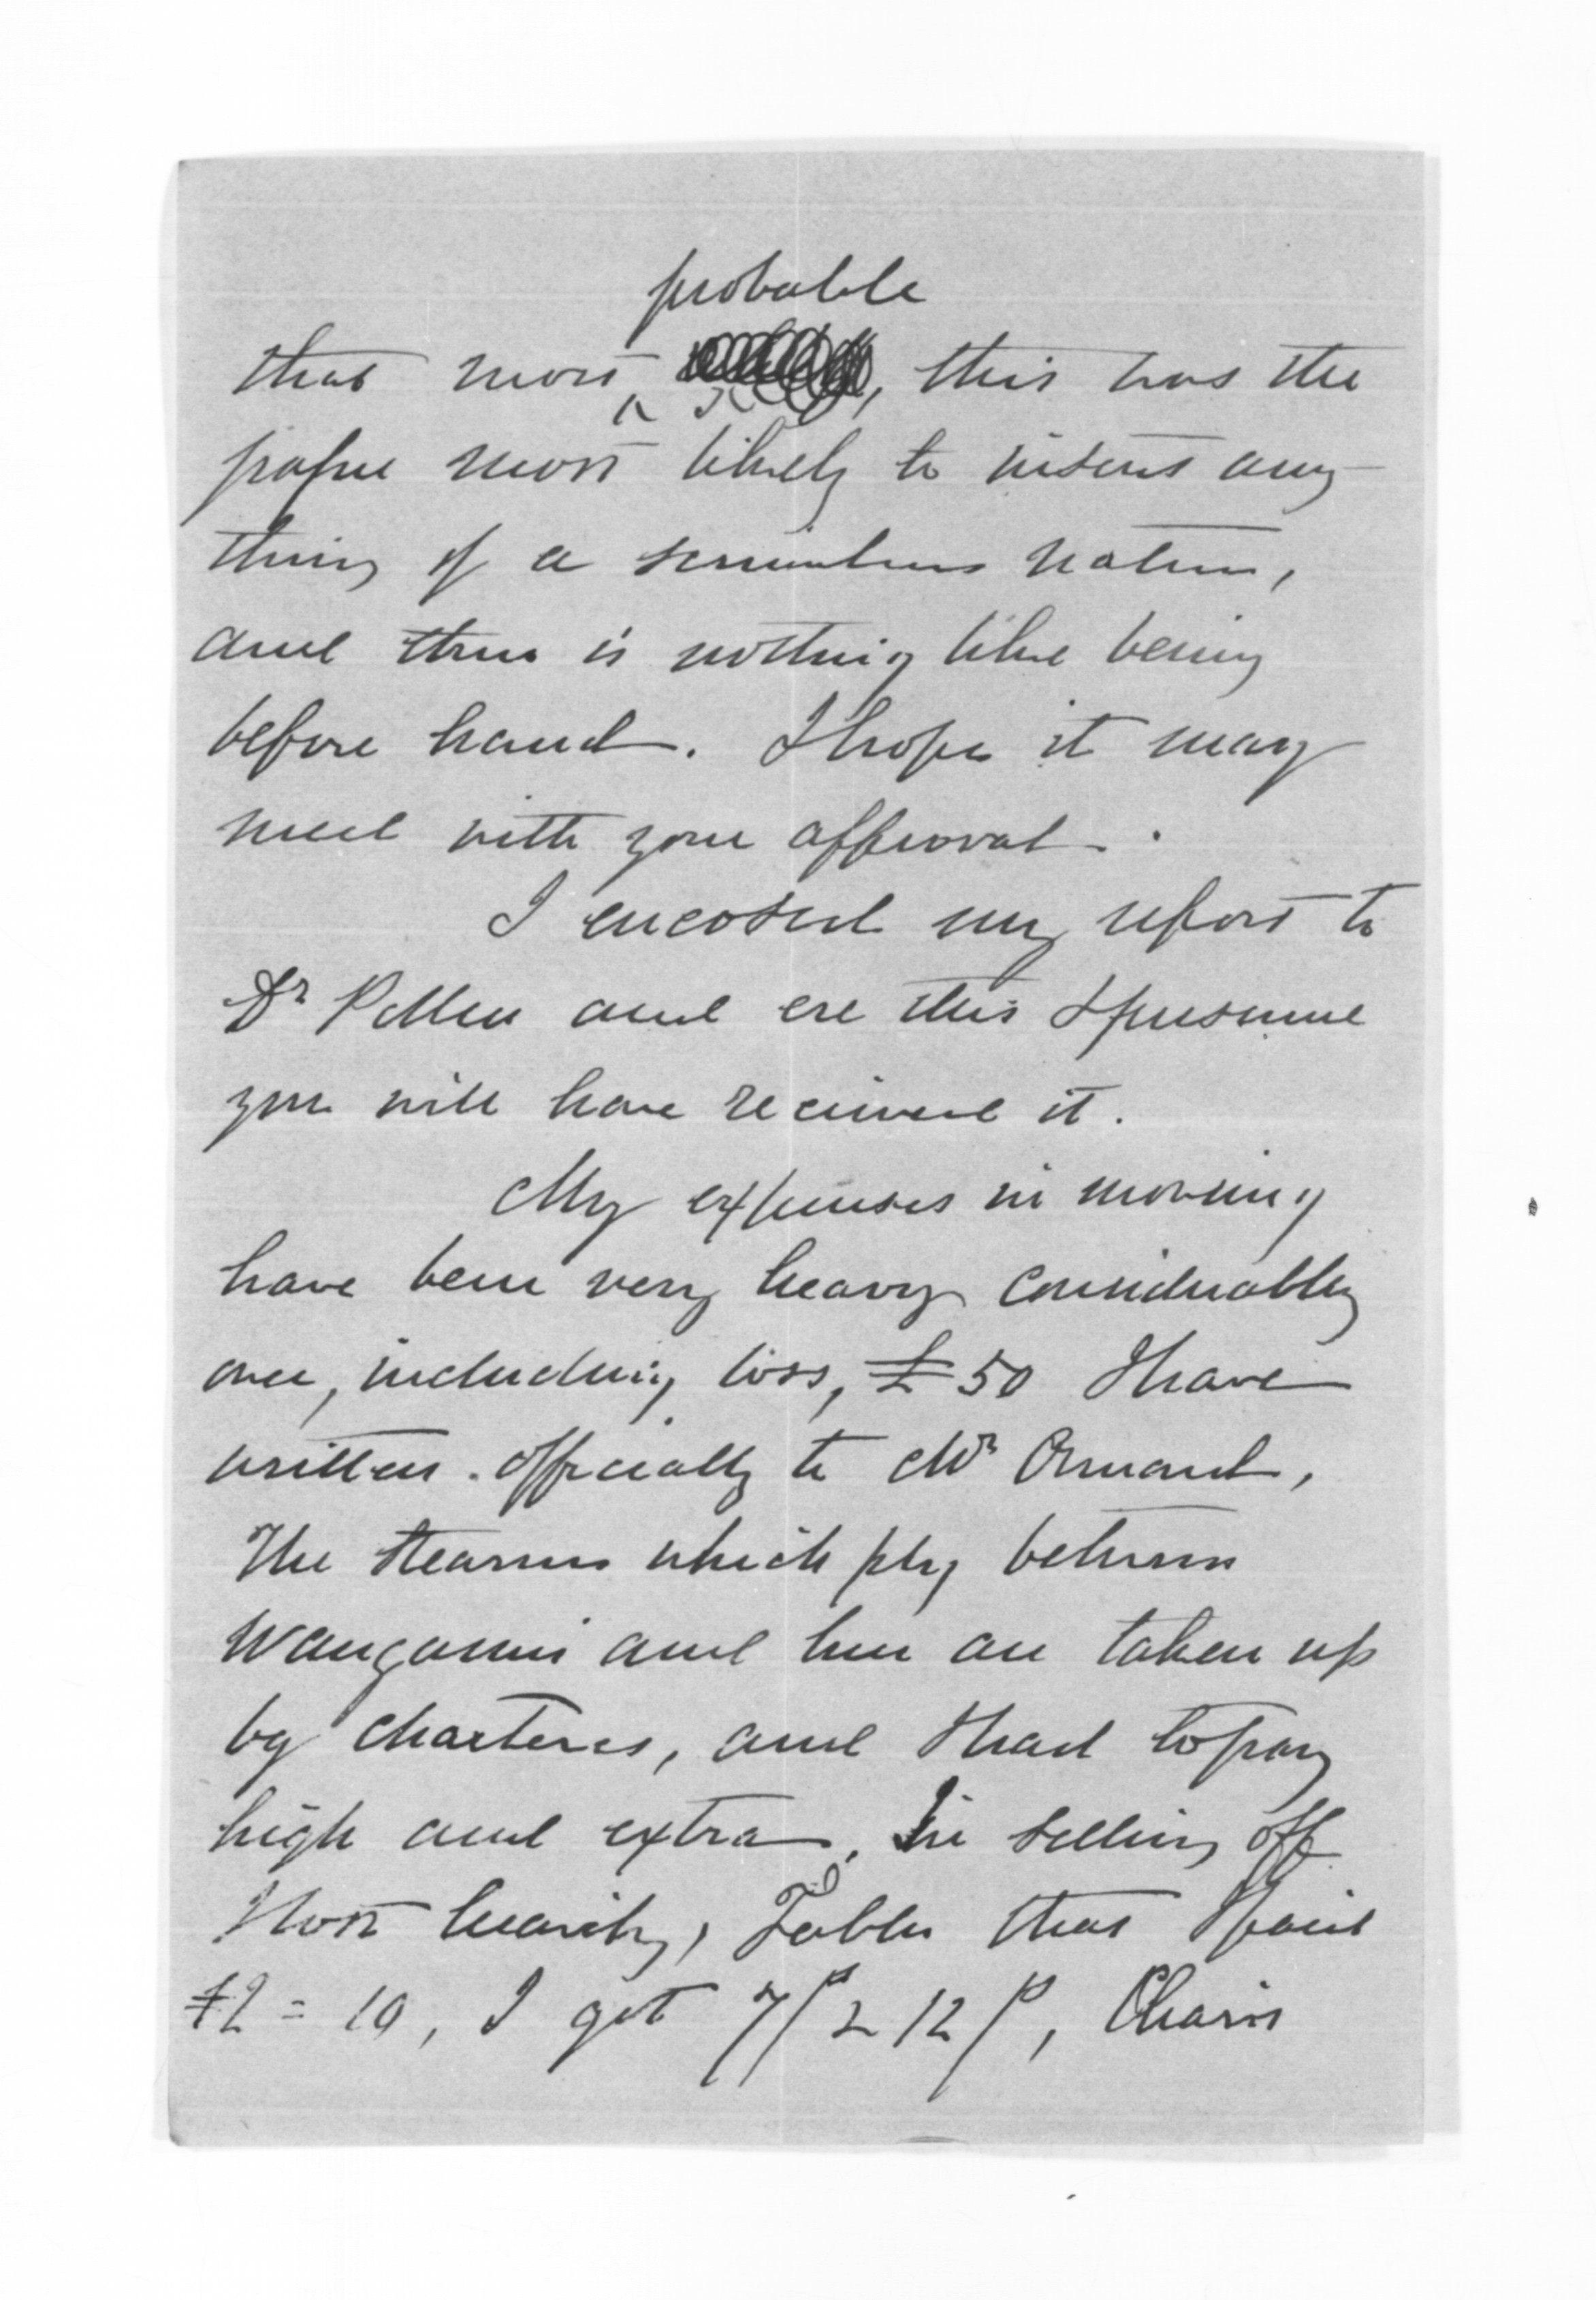 probable
that most, this was the
paper most likely to insert any
thing of a scurrilous nature,
and there is nothing like being
before hand. I hope it may
meet with your approval.
I encosed my report to
Dr Pollen and ere this I presume
you will have received it.
My expenses in moving
have been very heavy considerably
over, including loss, £50 I have
written officially to Mr Ormond,
The steamers which ply between
Wanganui and here are taken up
by charterers, and I had to pay
high and extra, In selling off
I lost heavily, Tables that I paid
£2 = 10, I got 7/ 12/, Chairs